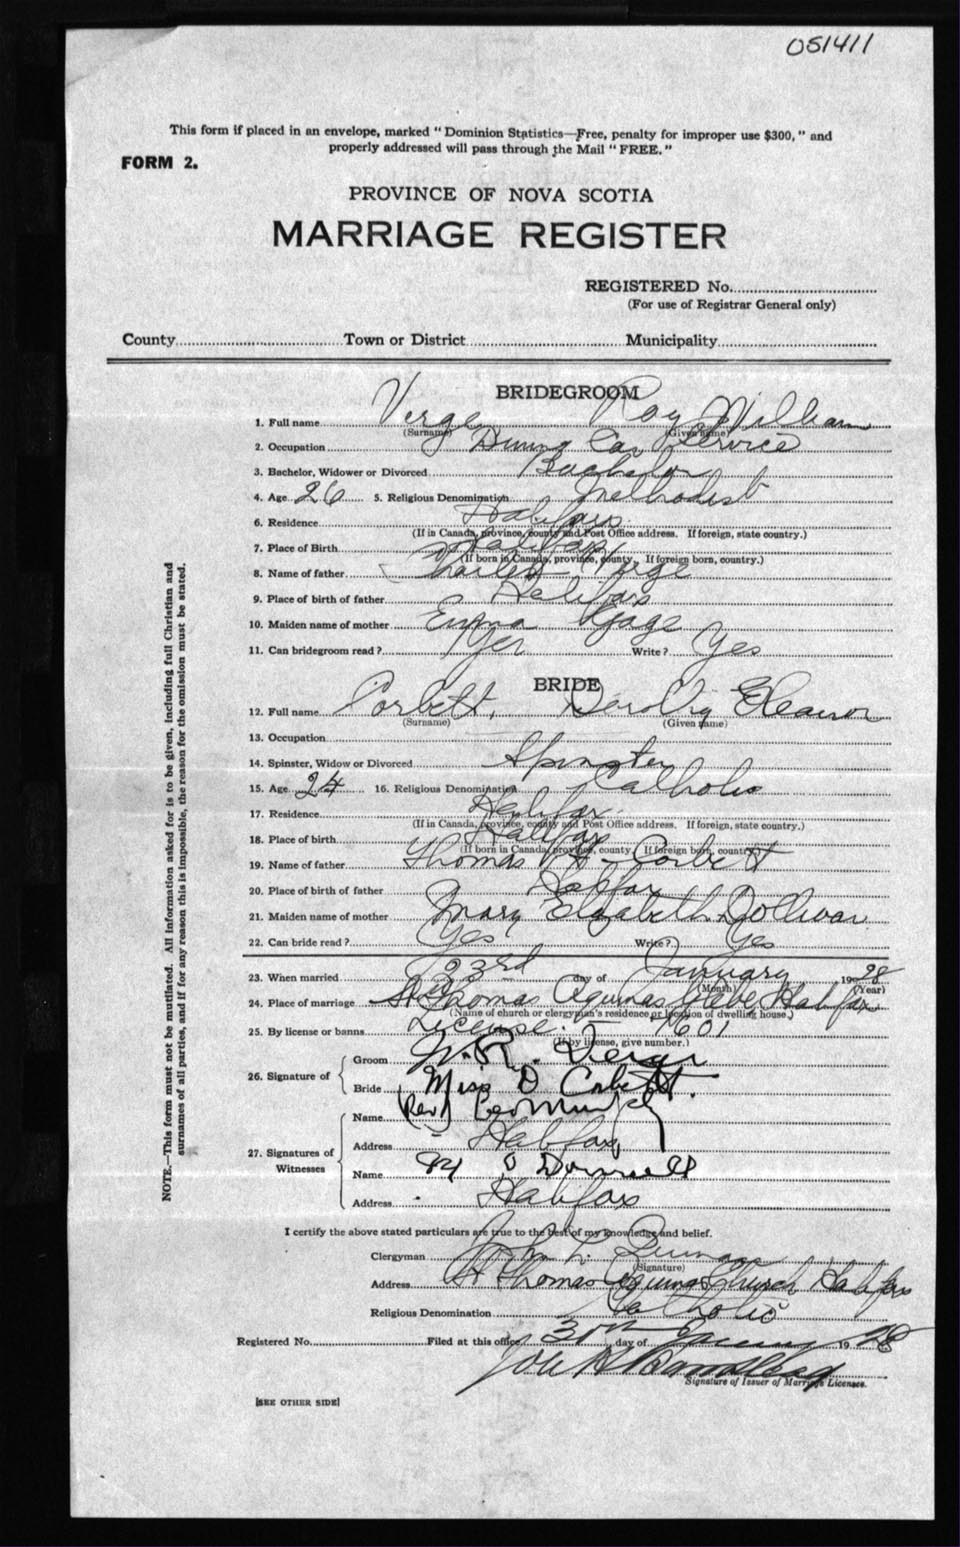 051411
This form if placed in an envelope, marked "Dominion Statistics—Free, penalty for improper use $300," and
properly addressed will pass through the Mail "FREE."
FORM 2.
PROVINCE OF NOVA SCOTIA
MARRIAGE REGISTER
REGISTERED No.
(For use of Registrar General only)
County Town or District Municipality
BRIDEGROOM
1. Full name Verge Roy William
(Surname) (Given name)
2. Occupation Dining Car Service
3. Bachelor, Widower or Divorced Bachelor
4. Age 26 5. Religious Denomination Methodist
6. Residence Halifax
(If in Canada, province, county and Post Office address. If foreign, state country.)
7. Place of Birth Halifax
(If born in Canada, province, county. If foreign born, country.)
8. Name of father Charles Verge
9. Place of birth of father Halifax
10. Maiden name of mother Emma Gage
11. Can bridegroom read? Yes Write? Yes
BRIDE
12. Full name Corbett, Dorothy Eleanor
(Surname) (Given name)
13. Occupation
14. Spinster, Widow or Divorced Spinster
15. Age 24 16. Religious Denomination Catholic
17. Residence Halifax
(If in Canada, province, county and Post Office address. If foreign, state country.)
18. Place of birth Halifax
(If born in Canada, province, county. If foreign born, country.)
19. Name of father Thomas Corbett
20. Place of birth of father Halifax
21. Maiden name of mother Mary Elizabeth Dolliver
22. Can bride read? Yes Write? Yes
23. When married 23rd day of January 1928
(Month) (Year)
24. Place of marriage St Thomas Aquinas Glebe Halifax
(Name of church or clergyman's residence or location of dwelling house.)
25. By license or banns License - 7601
(If by license, give number.)
26. Signature of
Groom W. R. Verge
Bride Miss D Corbett.
27. Signatures of Witnesses
Name (Rev) Leo Murphy
Address Halifax
Name O Donnell
Address Halifax
I certify the above stated particulars are true to the best of my knowledge and belief.
Clergyman John L. Quinan
(Signature)
Address St Thomas Aquinas Church Halifax
Religious Denomination Catholic
Registered No. Filed at this office 30th day of January 1928
Signature of Issuer of Marriage Licenses.
[SEE OTHER SIDE]
NOTE.—This form must not be mutilated. All information asked for is to be given, including full Christian and
surnames of all parties, and if for any reason this is impossible, the reason for the omission must be stated.